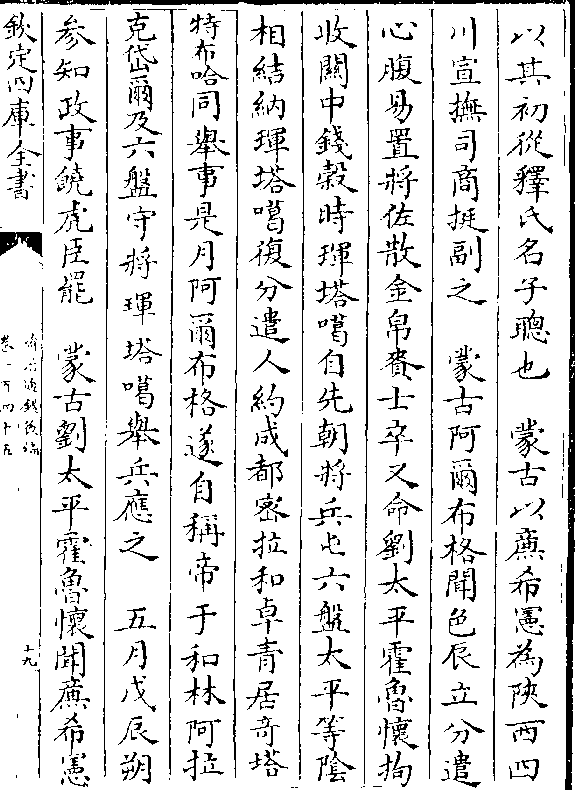 以其初從釋氏名子聰也　蒙古以㢘希憲為陜西四
川宣撫司商挺副之　蒙古阿爾布格聞色辰立分遣
心腹易置將佐散金帛賚士卒又命劉太平霍魯懷拘
收關中錢榖時琿塔噶自先朝將兵屯六盤太平等陰
相結納琿塔噶復分遣人約成都密拉和卓青居奇塔
特布哈同舉事是月阿爾布格遂自稱帝于和林阿拉
克岱爾及六盤守將琿塔噶舉兵應之　五月戊辰朔
參知政事饒虎臣罷　蒙古劉太平霍魯懷聞㢘希憲
欽定四庫全書
卷一百四十五
十九